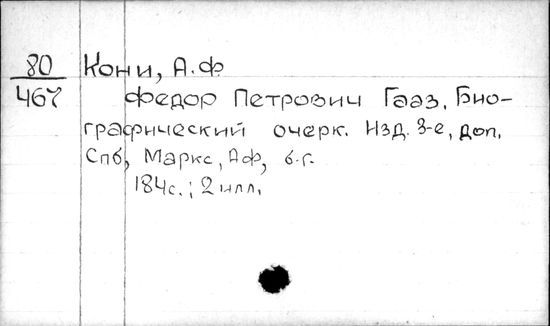 80 Кони, А.Ф
467 Федор Петрович Гааз. Био-
графический очерк. Изд. 3-е, доп.
Спб, Маркс, Аф, б.г.
184с.; 2 илл.